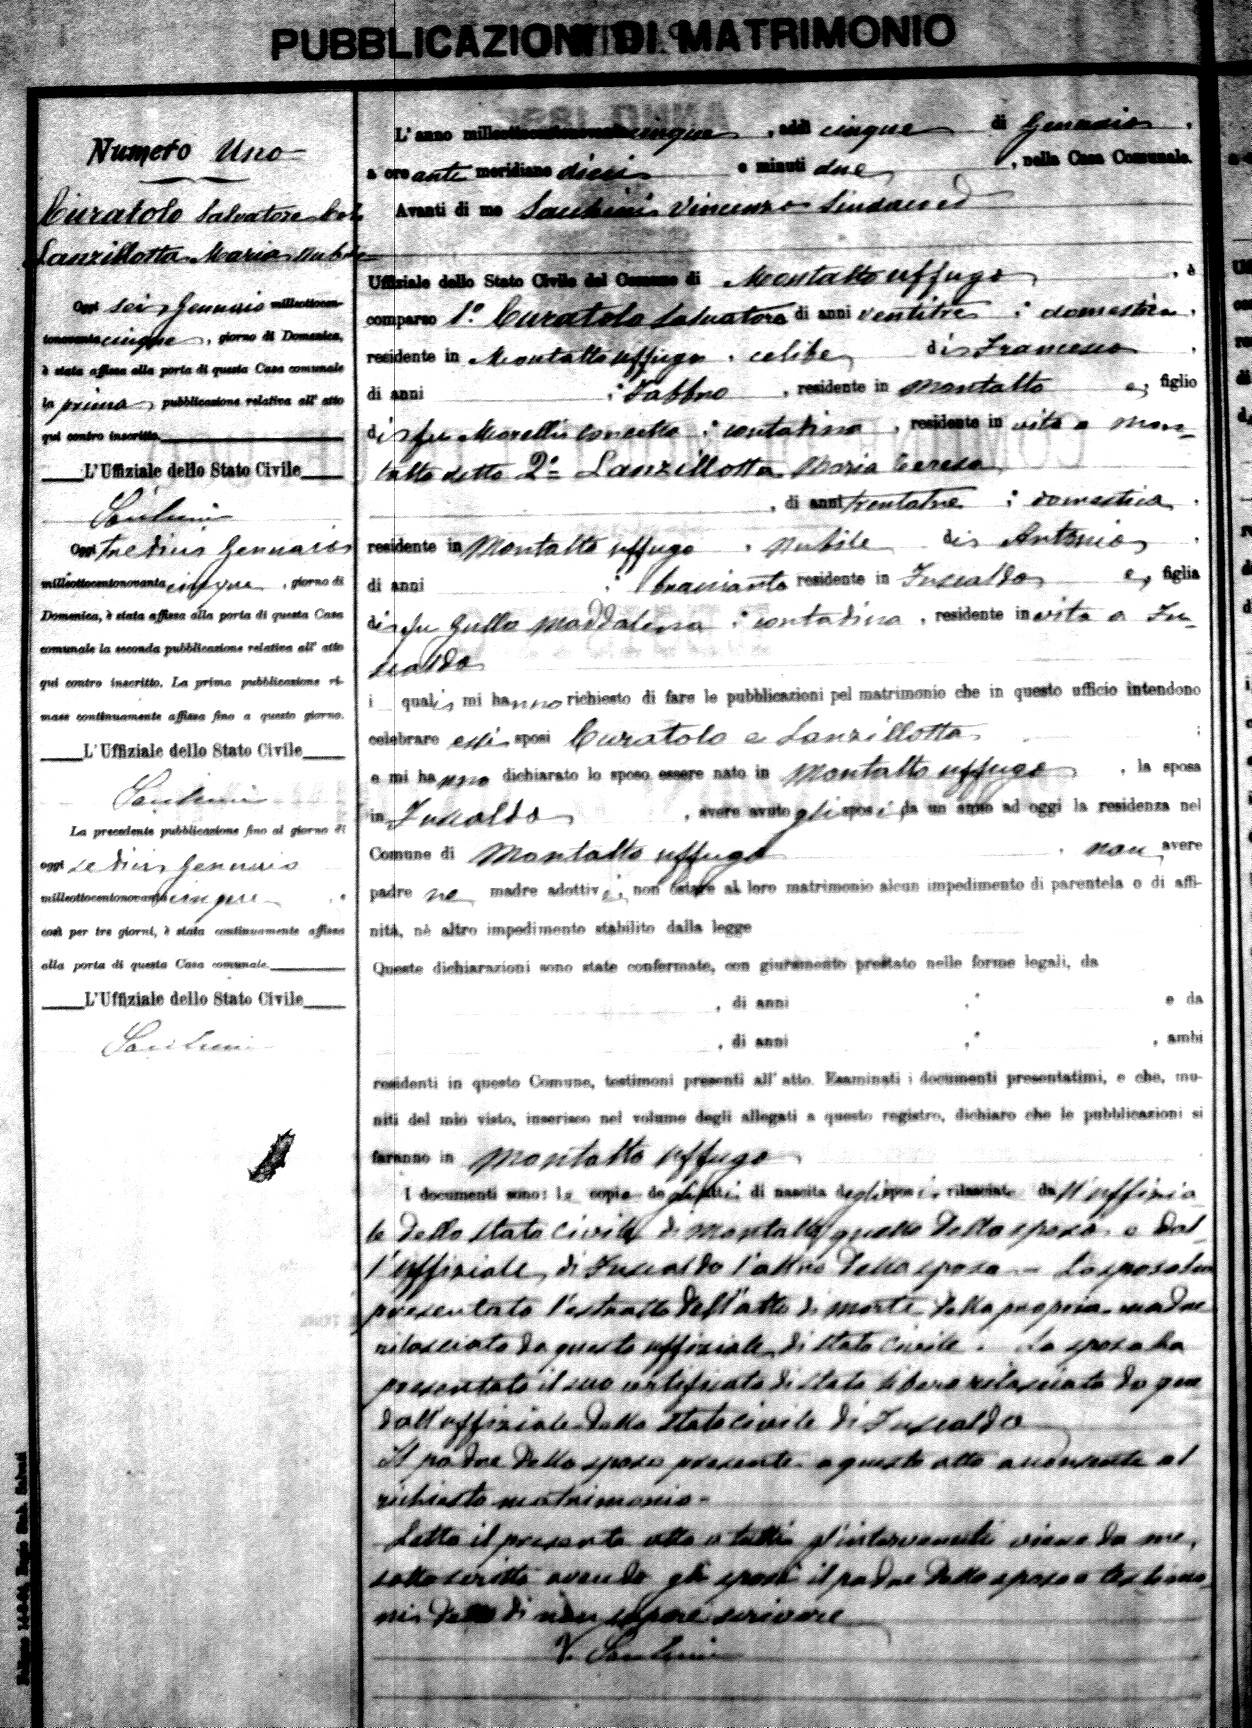 PUBBLICAZIONI DI MATRIMONIO
Numero Uno
Curatolo Salvatore
Lanzillotta Maria
Oggi sei Gennaio milleottocen-
tonovanta cinque, giorno di Domenica,
è stata affissa alla porta di questa Casa comunale
la prima pubblicazione relativa all' atto
qui contro inscritto.
L'Uffiziale dello Stato Civile
Oggi tredici Gennaio
milleottocentonovanta cinque, giorno di
Domenica, è stata affissa alla porta di questa Casa
comunale la seconda pubblicazione relativa all' atto
qui contro inscritto. La prima pubblicazione ri-
mase continuamente affissa fino a questo giorno.
L'Uffiziale dello Stato Civile
La precedente pubblicazione fino al giorno di
oggi sedici Gennaio
milleottocentonovanta cinque
così per tre giorni, è stata continuamente affissa
alla porta di questa Casa comunale.
L'Uffiziale dello Stato Civile
L'anno milleottocentonovanta cinque, addì cinque di Gennaio,
a ore ante meridiane dieci e minuti due, nella Casa Comunale.
Avanti di me Vincenzo Sindaco ed
Uffiziale dello Stato Civile del Comune di Montalto Uffugo, è
comparso 1º Curatolo Salvatore di anni ventitre; domestico,
residente in Montalto Uffugo, celibe di Francesco,
di anni ; fabbro, residente in Montalto e, figlio
di fu Morelli Concetta; contadina, residente in vita a Mon-
talto detto 2º Lanzillotta Maria Teresa
, di anni trentatre; domestica,
residente in Montalto Uffugo, nubile di Antonio,
di anni ; bracciante residente in Fuscaldo e, figlia
di fu Gullo Maddalena; contadina, residente in vita a Fu-
scaldo
i quali mi hanno richiesto di fare le pubblicazioni pel matrimonio che in questo ufficio intendono
celebrare essi sposi Curatolo e Lanzillotta;
e mi hanno dichiarato lo sposo essere nato in Montalto Uffugo, la sposa
in Fuscaldo, avere avuto gli sposi da un anno ad oggi la residenza nel
Comune di Montalto Uffugo, non avere
padre ne madre adottivi, non ostare al loro matrimonio alcun impedimento di parentela o di affi-
nità, nè altro impedimento stabilito dalla legge
Queste dichiarazioni sono state confermate, con giuramento prestato nelle forme legali, da
, di anni ; e da
, di anni ; , ambi
residenti in questo Comune, testimoni presenti all' atto. Esaminati i documenti presentatimi, e che, mu-
niti del mio visto, inserisco nel volume degli allegati a questo registro, dichiaro che le pubblicazioni si
faranno in Montalto Uffugo
I documenti sono: la copia degli atti di nascita degli sposi rilasciate dall'uffizia
le dello stato civile di Montalto quello dello sposo e dal-
l'uffiziale di Fuscaldo l'altro della sposa - Lo sposo ha
presentato l'estratto dell'atto di morte della propria madre
rilasciato da questo uffiziale di stato civile. La sposa ha
presentato il suo certificato di stato libero rilasciato da
dall'uffiziale dello stato civile di Fuscaldo
Il padre dello sposo presente a questo atto acconsente al
richiesto matrimonio -
Letto il presente atto a tutti gl'intervenuti viene da me
sottoscritto avendo gli sposi il padre dello sposo e testimo-
ni detto di non sapere scrivere